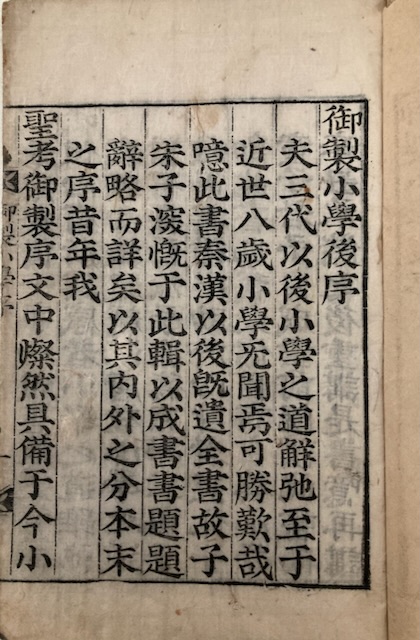 御製小學後序
夫三代以後小學之道解弛至于
近世八歲小學无聞焉可勝歎哉
噫此書秦漢以後旣遺全書故子
朱子深慨于此輯以成書書題題
辭略而詳矣以其內外之分本末
之序昔年我
聖考御製序文中燦然具備于今小
御製小學序